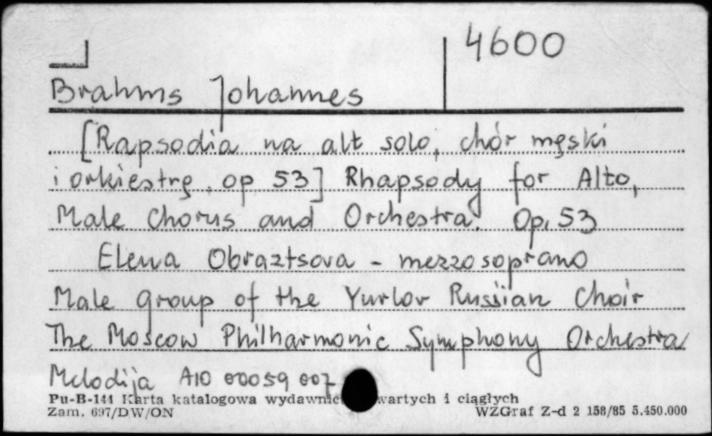 4600
Brahms Johannes
[Rapsodia na alt solo, chór męski
i orkiestrę, op 53] Rhapsody for Alto,
Male Chorus and Orchestra. Op. 53
Elena Obraztsova - mezzosoprano
Male group of the Yurlov Russian Choir
The Moscow Philharmonic Symphony Orchestra
Melodija A10 00059 007
Pu-B-144 Karta katalogowa wydawnic wartych i ciągłych
Zam. 697/DW/ON WZGraf Z-d 2 158/85 5.450.000